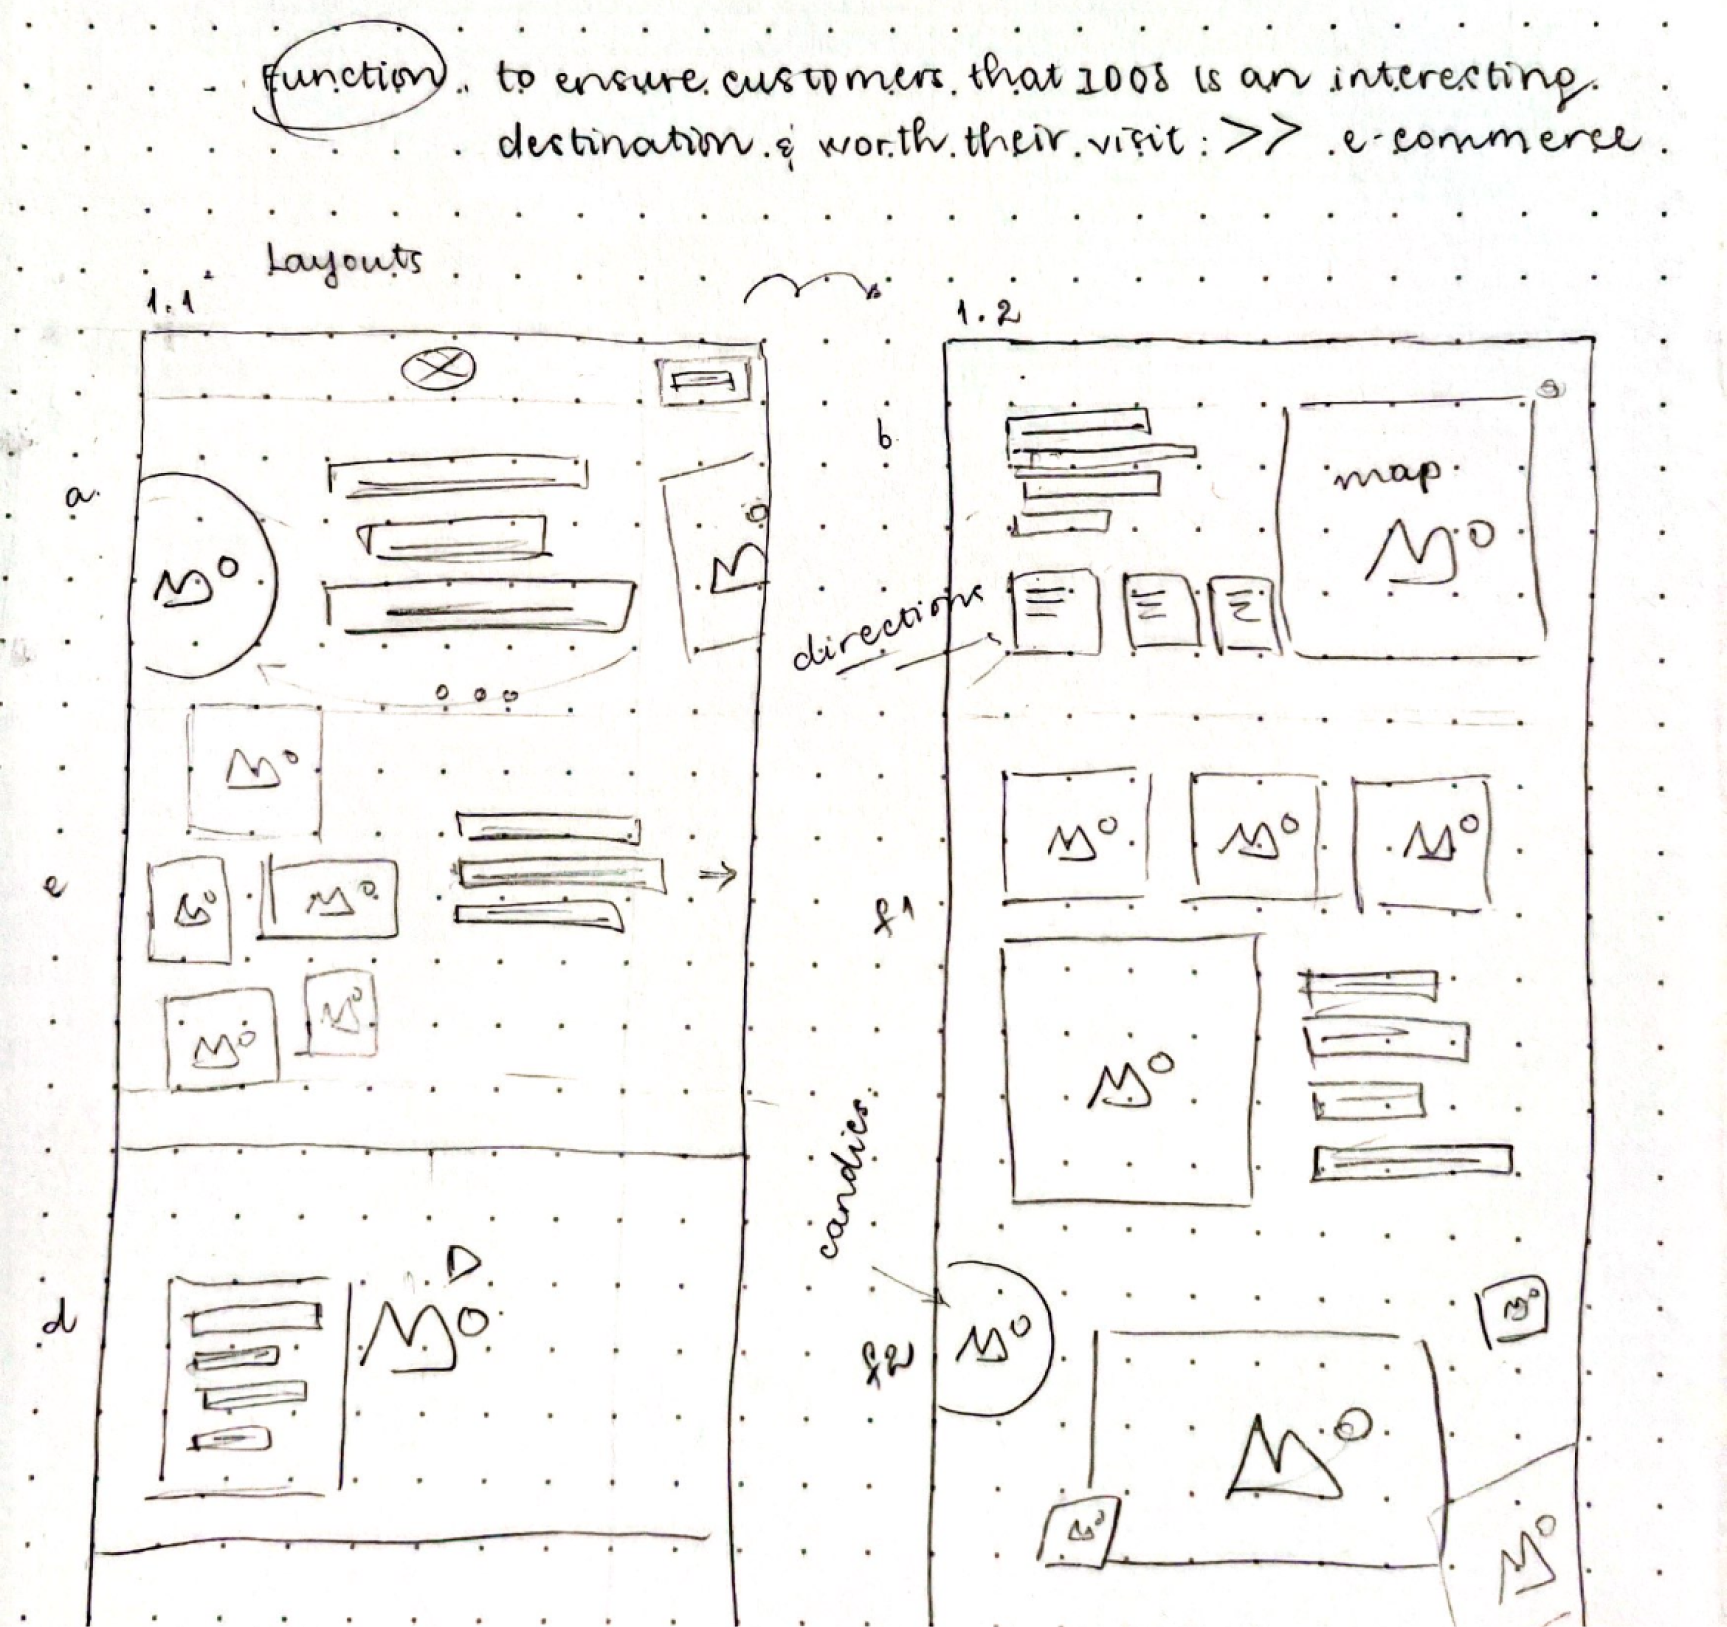 Function. to ensure customers that 100s is an interesting
destination & worth their visit: >> e-commerce
Layouts
1.1
1.2
a
b
map
directions
e
f1
candies
d
f2